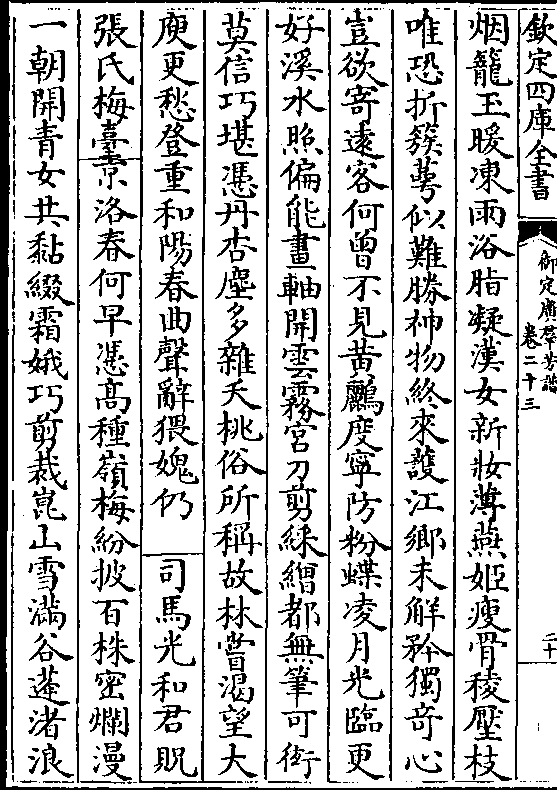 欽定四庫全書
御定廣羣芳譜
卷二十三
二十
烟籠玉暖凍雨浴脂凝漢女新妝薄燕姬瘦骨稜壓枝
唯恐折簇萼似難勝神物終來護江鄉未解矜獨竒心
豈欲寄逺客何曽不見黄鸝度寧防粉蝶凌月光臨更
好溪水照偏能畫軸開雲霧宫刀剪綵繒都無筆可衒
莫信巧堪憑丹杏塵多雜夭桃俗所稱故林嘗渴望大
庾更愁登重和陽春曲聲辭猥媿仍 司馬光和君貺
張氏梅臺京洛春何早憑髙種嶺梅紛披百株密爛漫
一朝開青女共黏綴霜娥巧剪裁崑山雪滿谷蓬渚浪